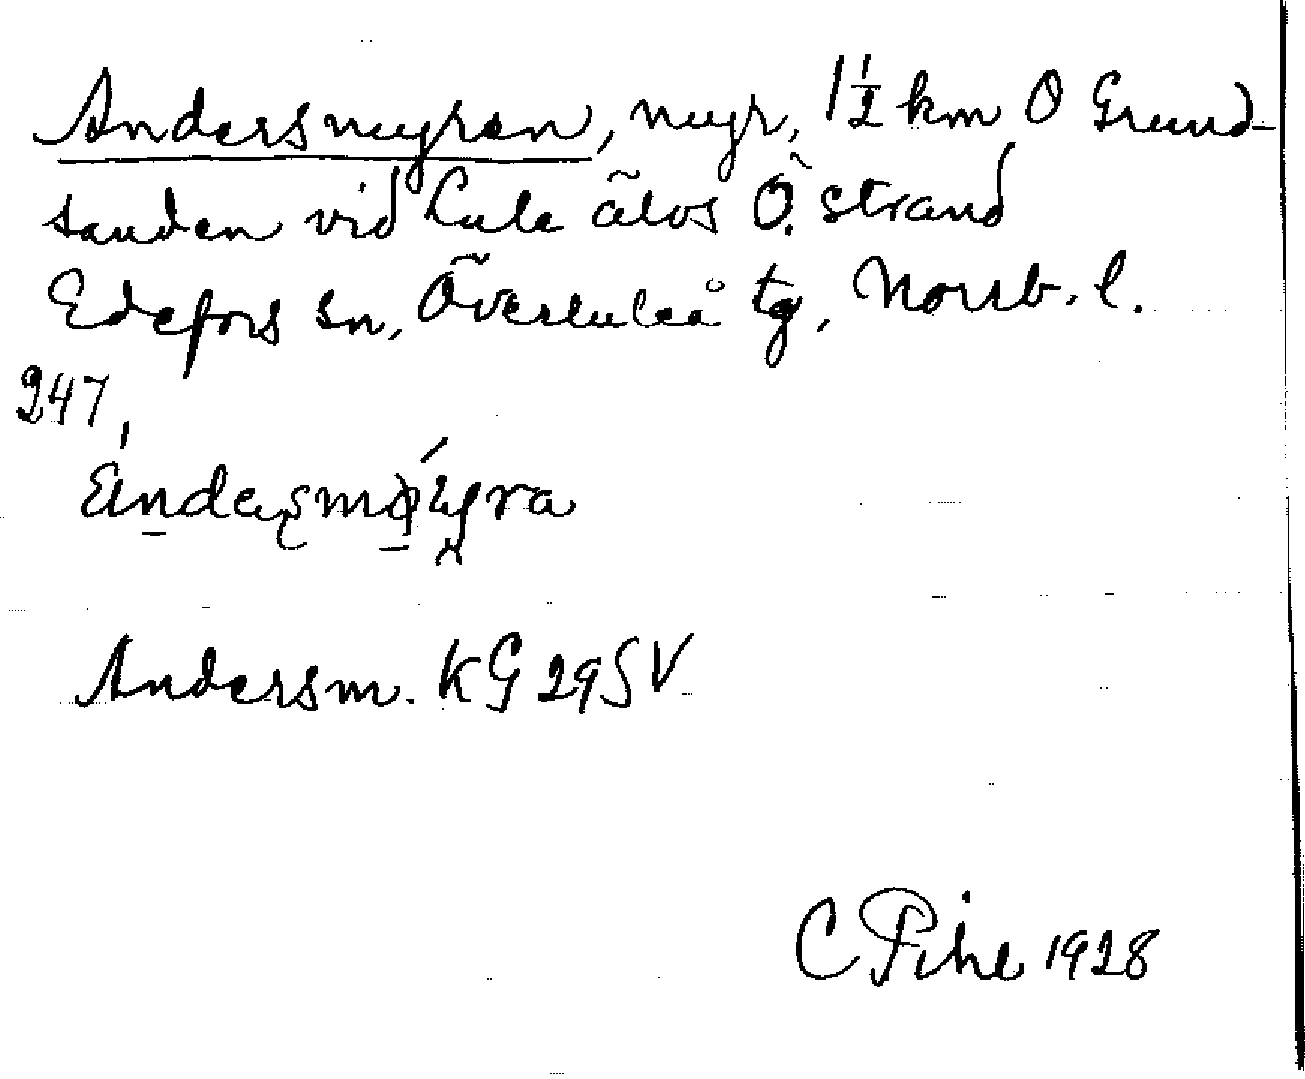 Andersmyren, myr, 1½ km O Grund-
sanden vid Lule älvs Ö. strand
Edefors sn, Överluleå tg, Norrb. l.
247,
Andersm. KG 29 SV
C Pihl 1928